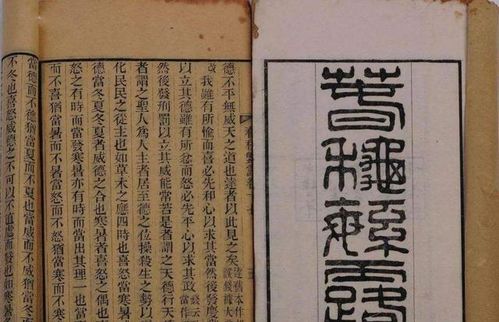 春秌緐露
德不平無威天之道也達者以此見之矣
我雖有所愉而喜必先和心以求其當然後發慶
以立其德雖有所忿而怒必先平心以求其政
然後發刑罰以立其威能常若是者謂之天德行天
德者謂之聖人爲人主者居至德之位操殺生之勢以
化民民之從主也如草木之應四時也喜怒當寒暑
德當冬夏冬夏者威德之合也寒暑者喜怒之偶也
怒之有時而當發寒暑亦有時而當出其理一也當
而不喜猶當暑而不暑當怒而不怒猶當寒而不寒
當德而不德猶當夏而不夏也當威而不威猶當冬
不冬也喜怒威德之不可以不直處而發也如寒暑